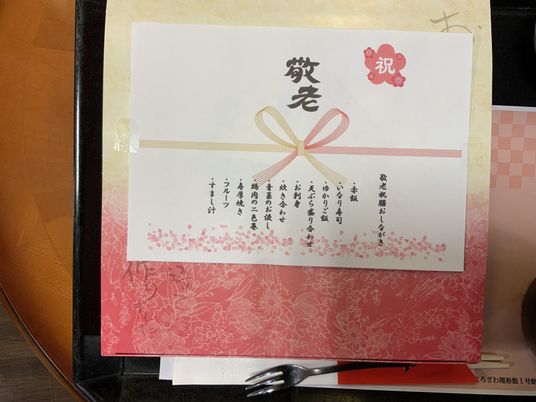 祝
敬老
敬老祝膳おしながき
・赤飯
・いなり寿司
・ゆかりご飯
・天ぷら盛り合わせ
・お刺身
・炊き合わせ
・青菜のお浸し
・鶏肉の二色巻
・寿厚焼き
・フルーツ
・すまし汁
ろざわ翔裕館1号館